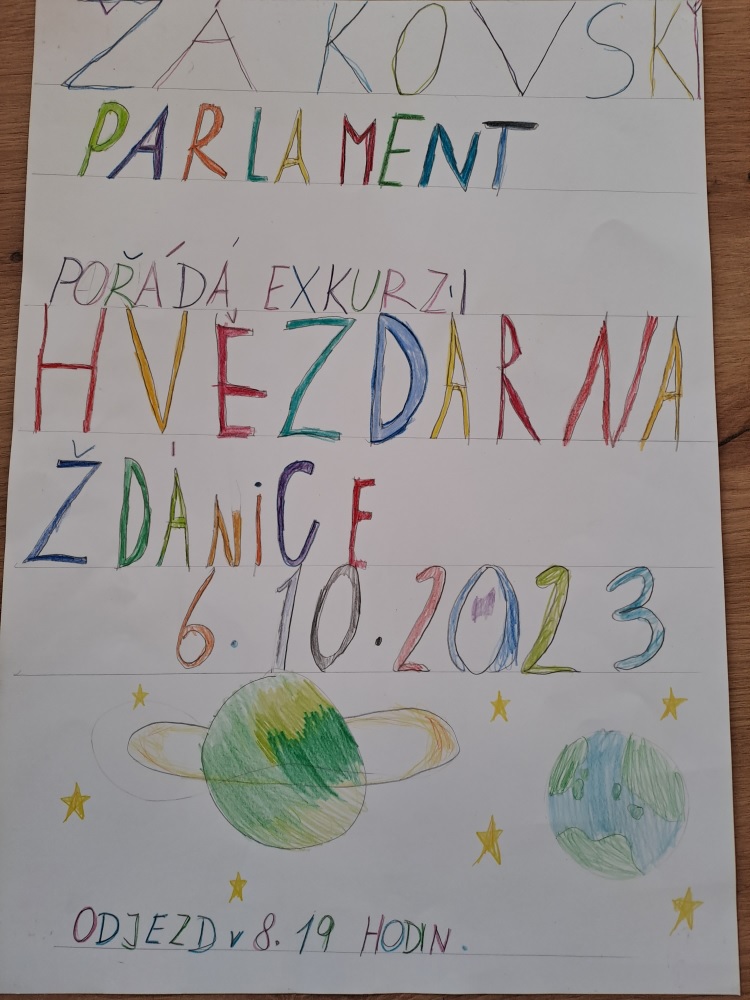 ŽÁKOVSKÝ
PARLAMENT
POŘÁDÁ EXKURZI
HVĚZDÁRNA
ŽDÁNiCE
6.10.2023
ODJEZD v 8.19 HODIN.